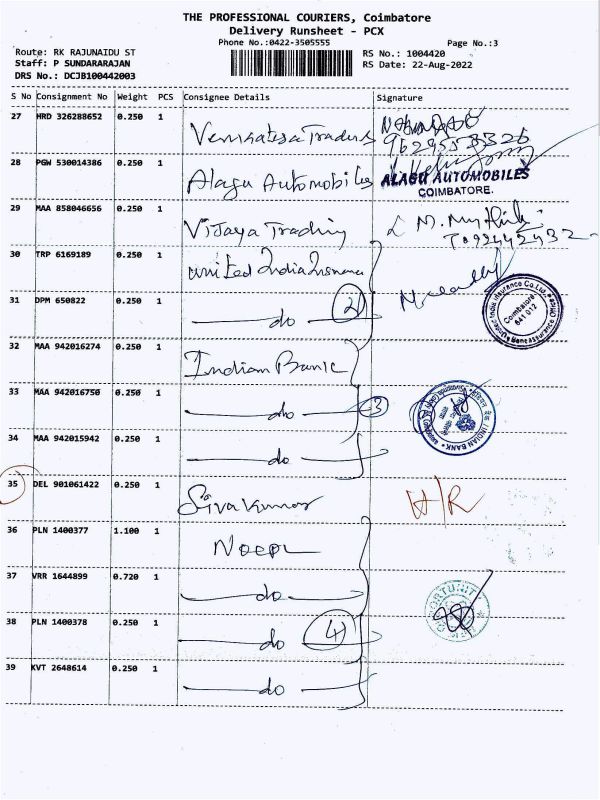 THE PROFESSIONAL COURIERS, Coimbatore
Delivery Runsheet - PCX
Phone No.:0422-3505555 Page No.:3
Route: RK RAJUNAIDU ST RS No.: 1004420
Staff: P SUNDARARAJAN RS Date: 22-Aug-2022
DRS No.: DCJB100442003
S No Consignment No Weight PCS Consignee Details Signature
27 HRD 326288652 0.250 1 Venkatesa Traders
28 PGW 530014386 0.250 1 Alagu Automobiles ALAGU AUTOMOBILES
COIMBATORE.
29 MAA 858046656 0.250 1 Vijaya Trading
30 TRP 6169189 0.250 1 United India Insurance
31 DPM 650822 0.250 1 do 2
United India Insurance Co.Ltd. Coimbatore 641 012
32 MAA 942016274 0.250 1 Indian Bank
33 MAA 942016750 0.250 1 do 3
INDIAN BANK
34 MAA 942015942 0.250 1 do
35 DEL 901061422 0.250 1 Sivakumar H/R
36 PLN 1400377 1.100 1
37 VRR 1644899 0.720 1 do
38 PLN 1400378 0.250 1 do 4
39 KVT 2648614 0.250 1 do